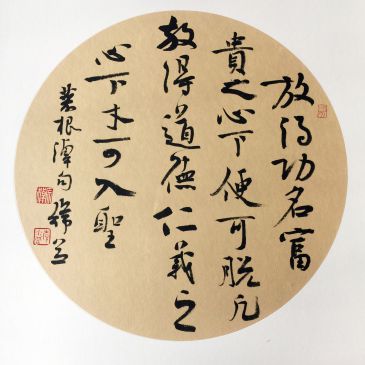 放得功名富
貴之心下便可脫凡
放得道德仁義之
心下才可入聖
菜根譚句